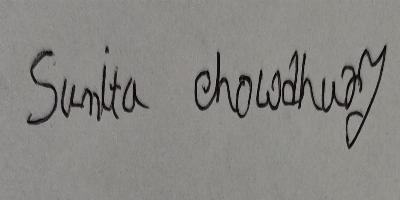 Sunita chowdhury